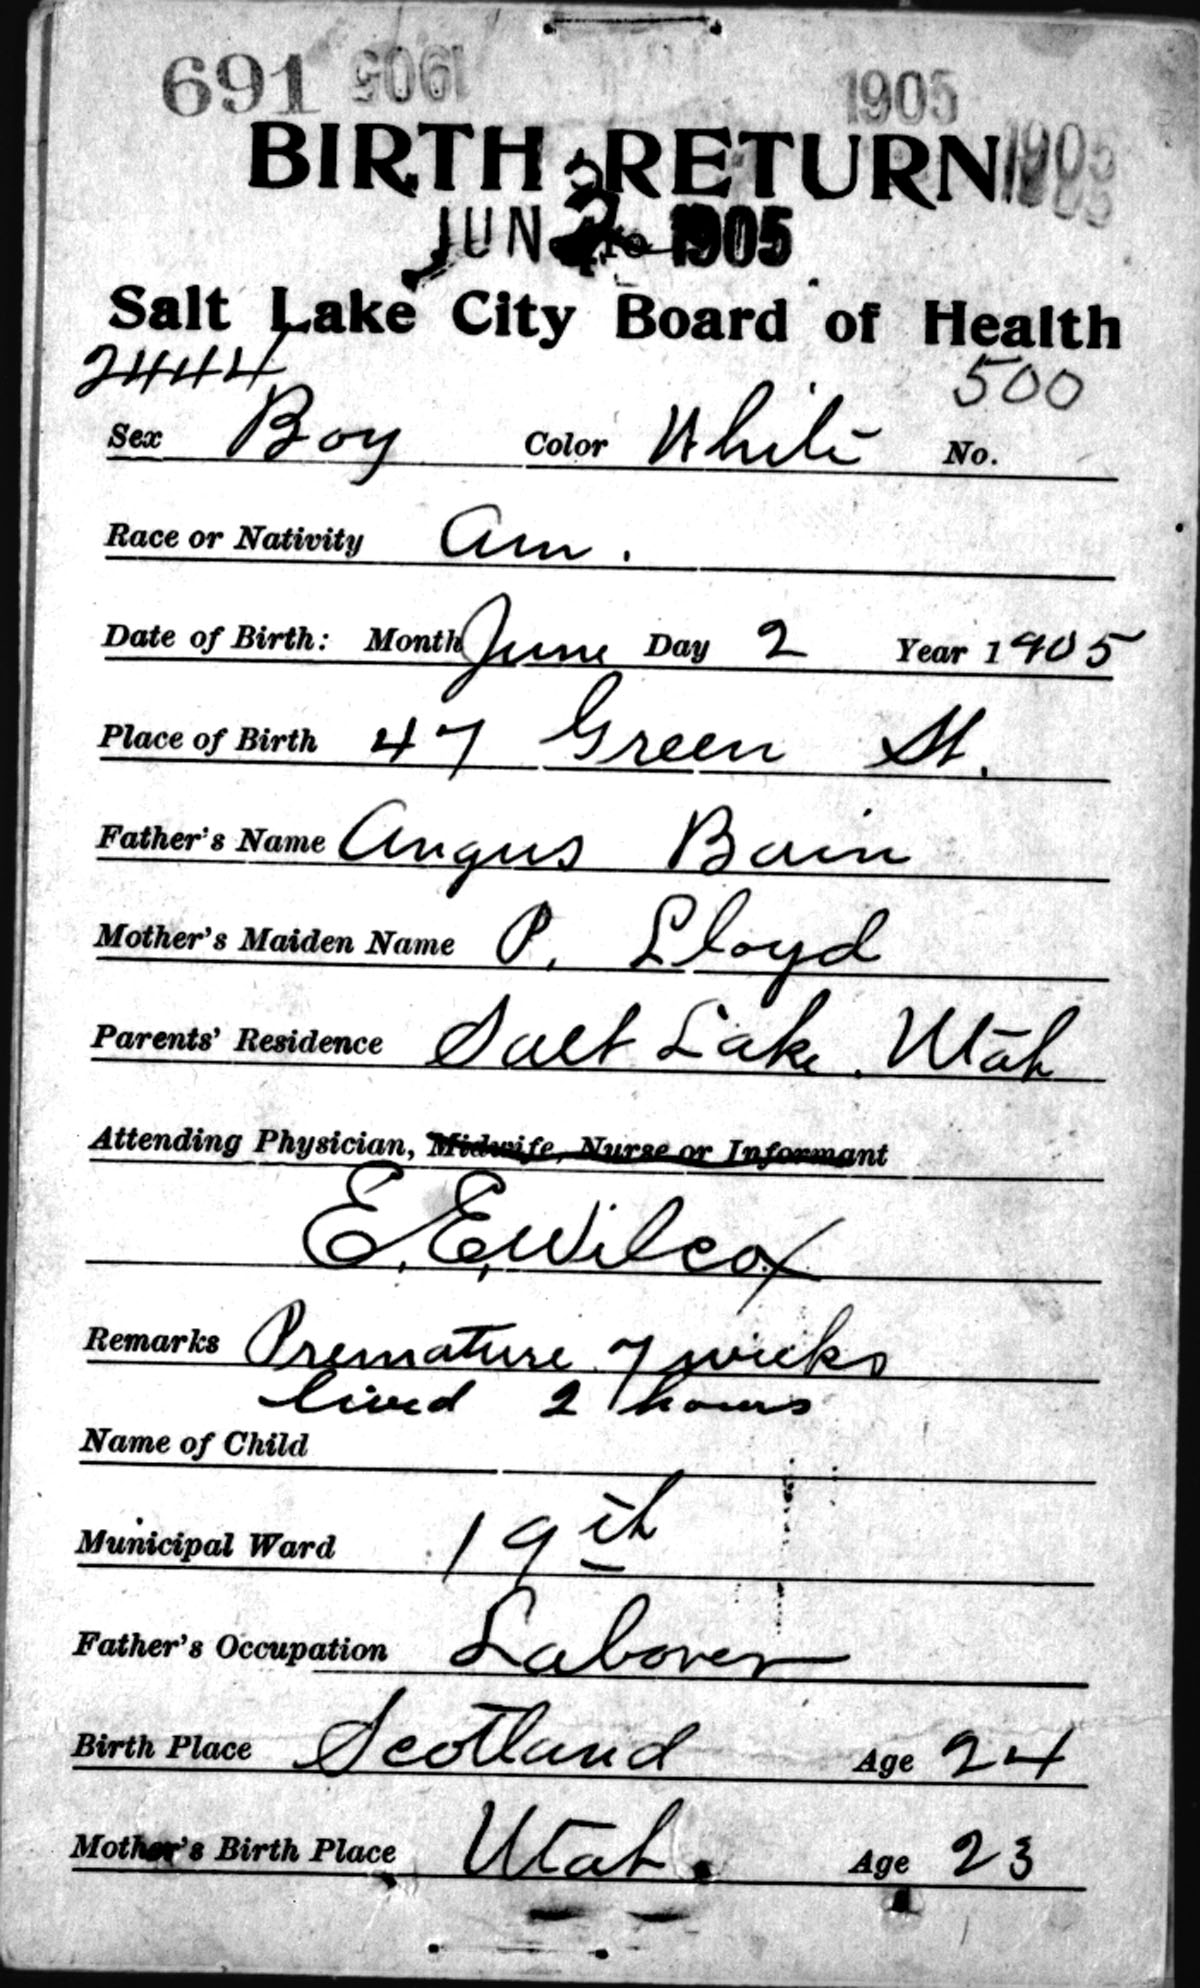 691 1905 1905
BIRTH RETURN 1905
JUN 2 1905
Salt Lake City Board of Health
2444 500
Sex Boy Color White No.
Race or Nativity Am.
Date of Birth: Month June Day 2 Year 1905
Place of Birth 47 Green St.
Father's Name Angus Bain
Mother's Maiden Name P. Lloyd
Parents' Residence Salt Lake, Utah
Attending Physician, Midwife, Nurse or Informant
E. E. Wilcox
Remarks Premature 7 weeks
lived 2 hours
Name of Child
Municipal Ward 19th
Father's Occupation Laborer
Birth Place Scotland Age 24
Mother's Birth Place Utah. Age 23